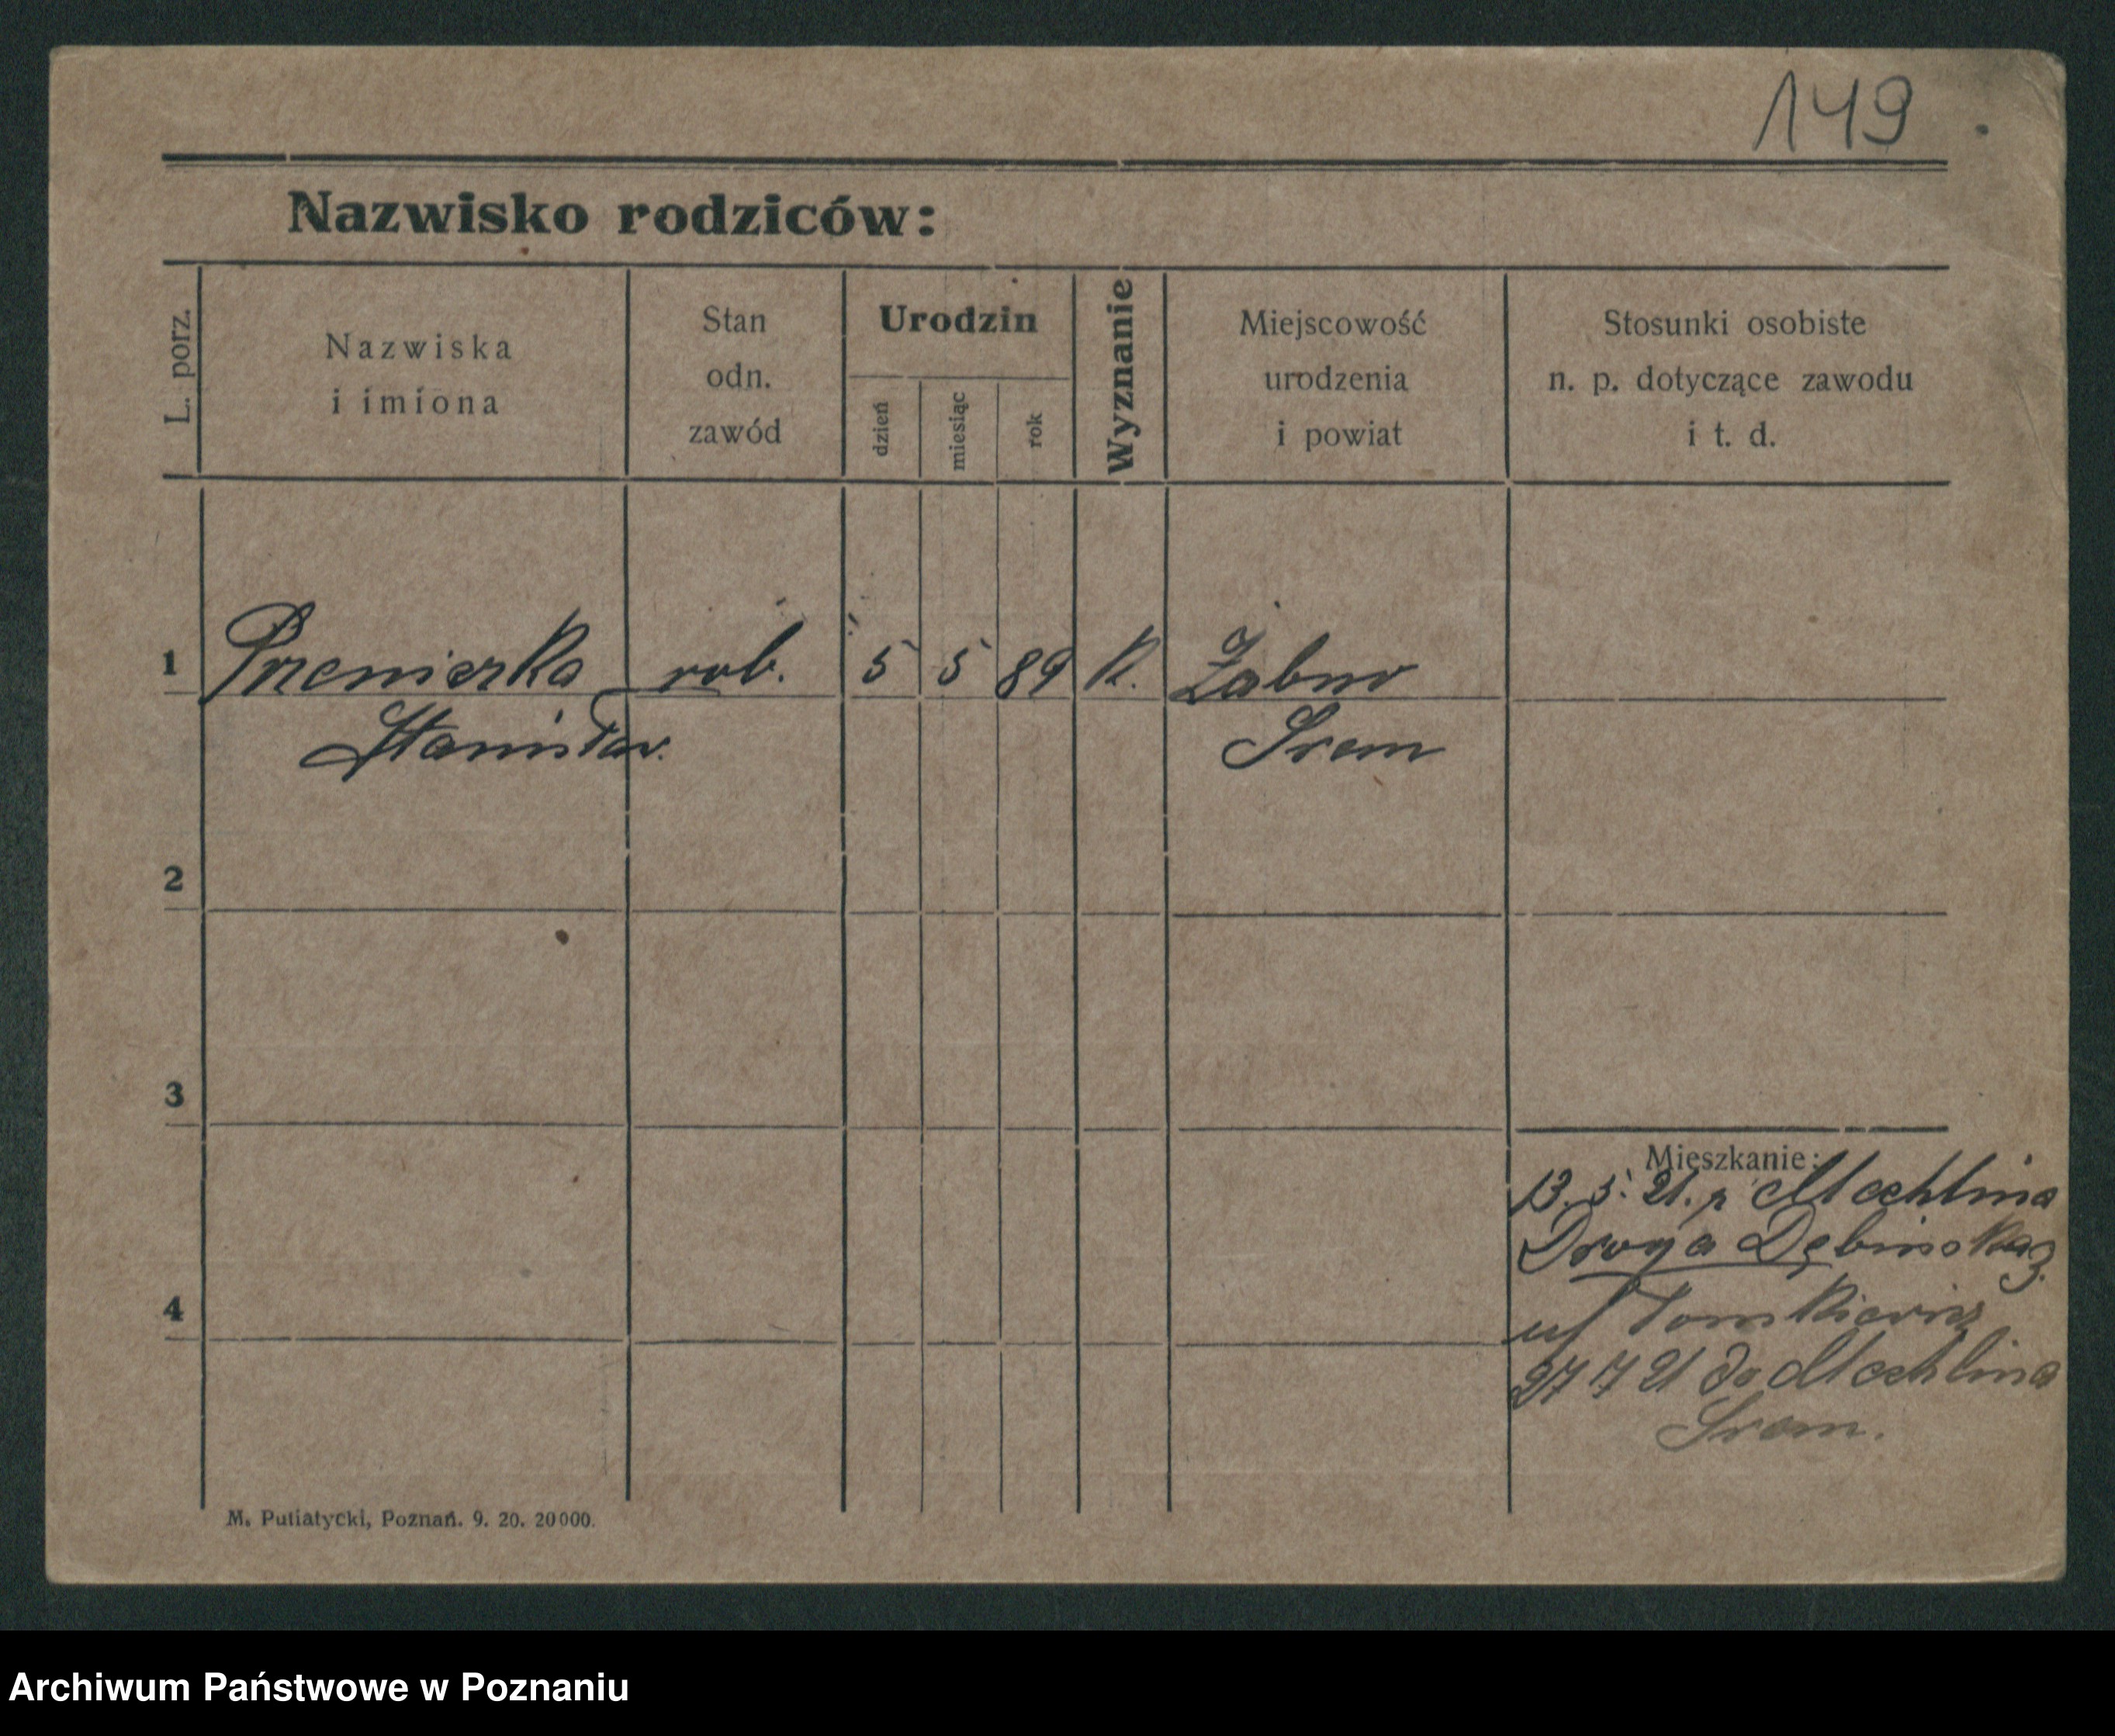 149
Nazwisko rodziców:
L. porz.
Nazwiska
i imiona
Stan
odn.
zawód
Urodzin
dzień
miesiąc
rok
Wyznanie
Miejscowość
urodzenia
i powiat
Stosunki osobiste
n. p. dotyczące zawodu
i t. d.
1 rob. 5 5 89 K. Żabno
Stanisław. Śrem
2
3
4
Mieszkanie:
13. 5. 21. z Mechlina
Droga Dębińska 3.
Tomkiewicz
27 7 21 do Mechlina
Śrem.
M. Putiatycki, Poznań. 9. 20. 20000.
Archiwum Państwowe w Poznaniu